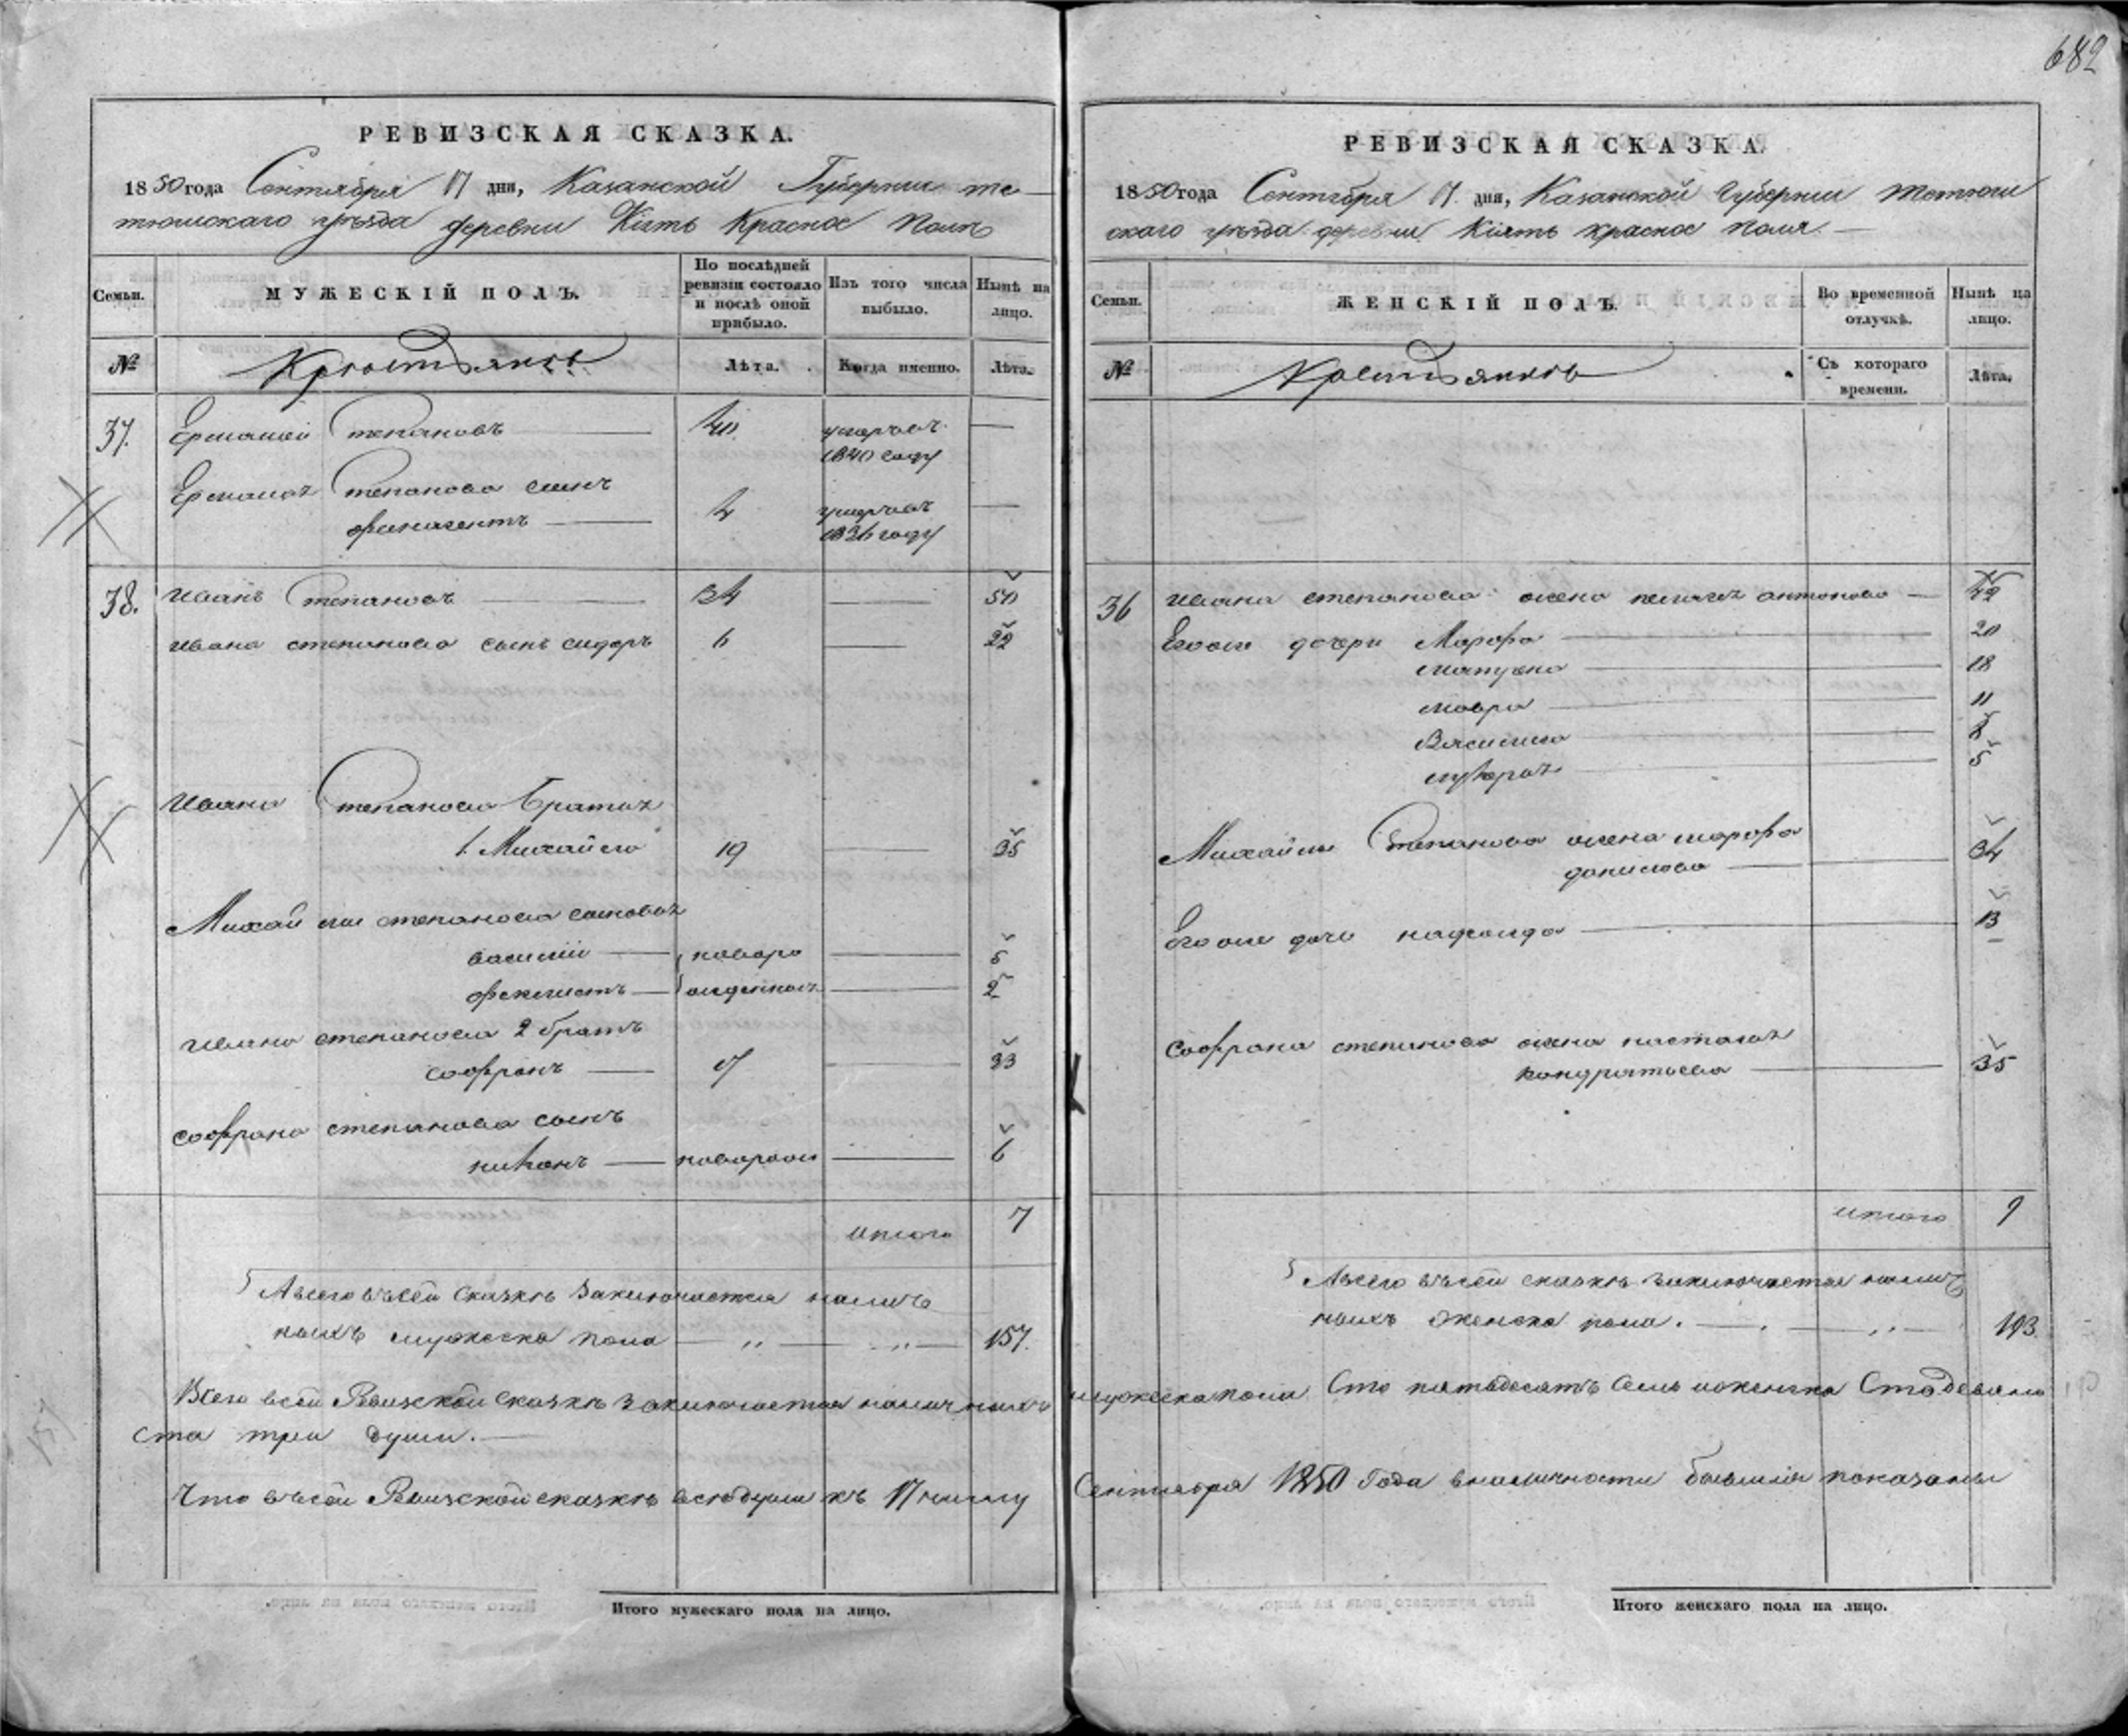 682
РЕВИЗСКАЯ СКАЗКА.
1850 года Сентября 17 дня, Казанской Губернии те-
тюшскаго уѣзда деревни Кіять Красное Поле
Семьи.
МУЖЕСКІЙ ПОЛЪ.
По послѣдней ревизіи состояло и послѣ оной прибыло.
Изъ того числа выбыло.
Нынѣ на лицо.
№
Крестьяновъ
Лѣта.
Когда именно.
Лѣта.
37. Степановъ 40 умерълъ —
1840 году
Степанова сынъ
4 умерълъ —
1836 году
38. Иванъ Степановъ 34 — 50
Ивана степанова сынъ сидоръ 6 — 22
Ивана Степанова братья
1. Михайло 19 — 35
Михайлы степанова сыновья
василий — новоро — 5
феклистъ — жденныя — 2
Ивана степанова 2 братъ
софронъ — 17 — 33
софрона степанова сынъ
никонъ — новорож — 6
итого 7
А всего въ сей сказкѣ заключается налич
ныхъ мужеска пола — „ — „ — 157.
РЕВИЗСКАЯ СКАЗКА.
1850 года Сентября 17. дня, Казанской Губерніи Тетюш
скаго уѣзда деревни Кіять красное поля. —
Семьи.
ЖЕНСКІЙ ПОЛЪ.
Во временной отлучкѣ.
Нынѣ на лицо.
№
Крестьяновъ
Съ котораго времени.
Лѣта.
36 Ивана степанова жена пелагея антонова —
Егоже дочери Марфа — 20
матрена — 18
мавра — 11
Василиса —
лукерья — 5
Михайлы Степанова жена марфа
данилова — 34
Егоже дочь надежда — 13
софрона степанова жена настасья
кондратьева — 35
итого 9
А всего въ сей сказкѣ заключается налич
ныхъ женска пола. — „ — 193.
Всего всей Ревизской сказкѣ заключается наличныхъ мужеска пола Сто пятьдесятъ семь и женска Сто девяно
ста три души. —
Что въ сей Ревизской сказкѣ все души къ 17 числу Сентября 1850 Года в наличности бывшія показаны
Итого мужескаго пола на лицо.
Итого женскаго пола на лицо.